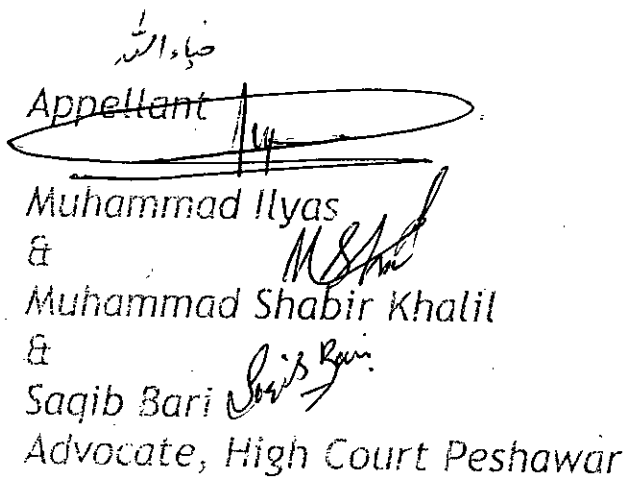 ضیاء اللہ
Appellant
Muhammad Ilyas
&
Muhammad Shabir Khalil
&
Saqib Bari Saqib Bari
Advocate, High Court Peshawar